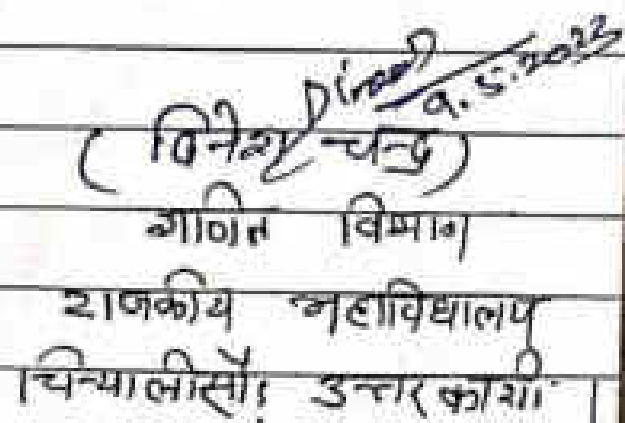 Dinesh
9.5.2022
( दिनेश चन्द्र )
गणित विभाग
राजकीय महाविद्यालय
चिन्यालीसौड़ उत्तरकाशी ।